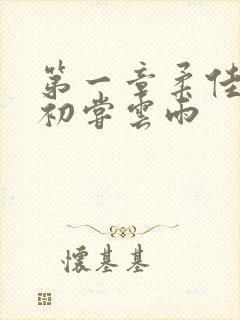 第一章柔佳
初嘗雲雨
懷基基